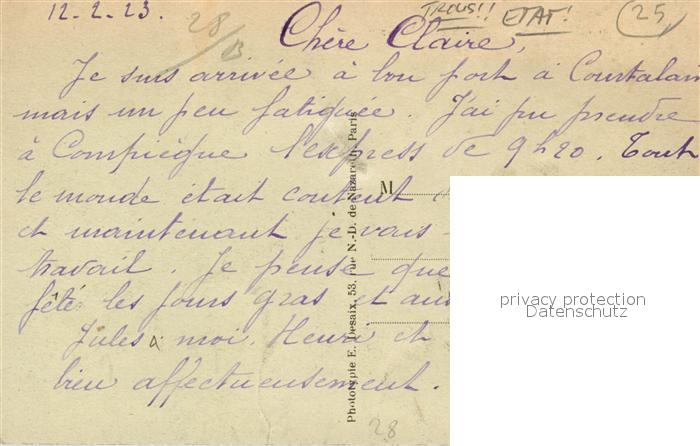 12-2-23.
28/B
TROUS!!
ETAT!
25
Chère Claire,
Je suis arrivée à bon port à Courtalain
mais un peu fatiguée. J'ai pu prendre
à Compiègne l'express de 9h20. Tout
le monde était content
et maintenant je vais
travail. Je pense que
fêté les jours gras et
Jules à moi. Henri et
bien affectueusement.
M
Phototypie E. Desaix, 53, rue N.-D. de Nazareth, Paris
28
privacy protection
Datenschutz